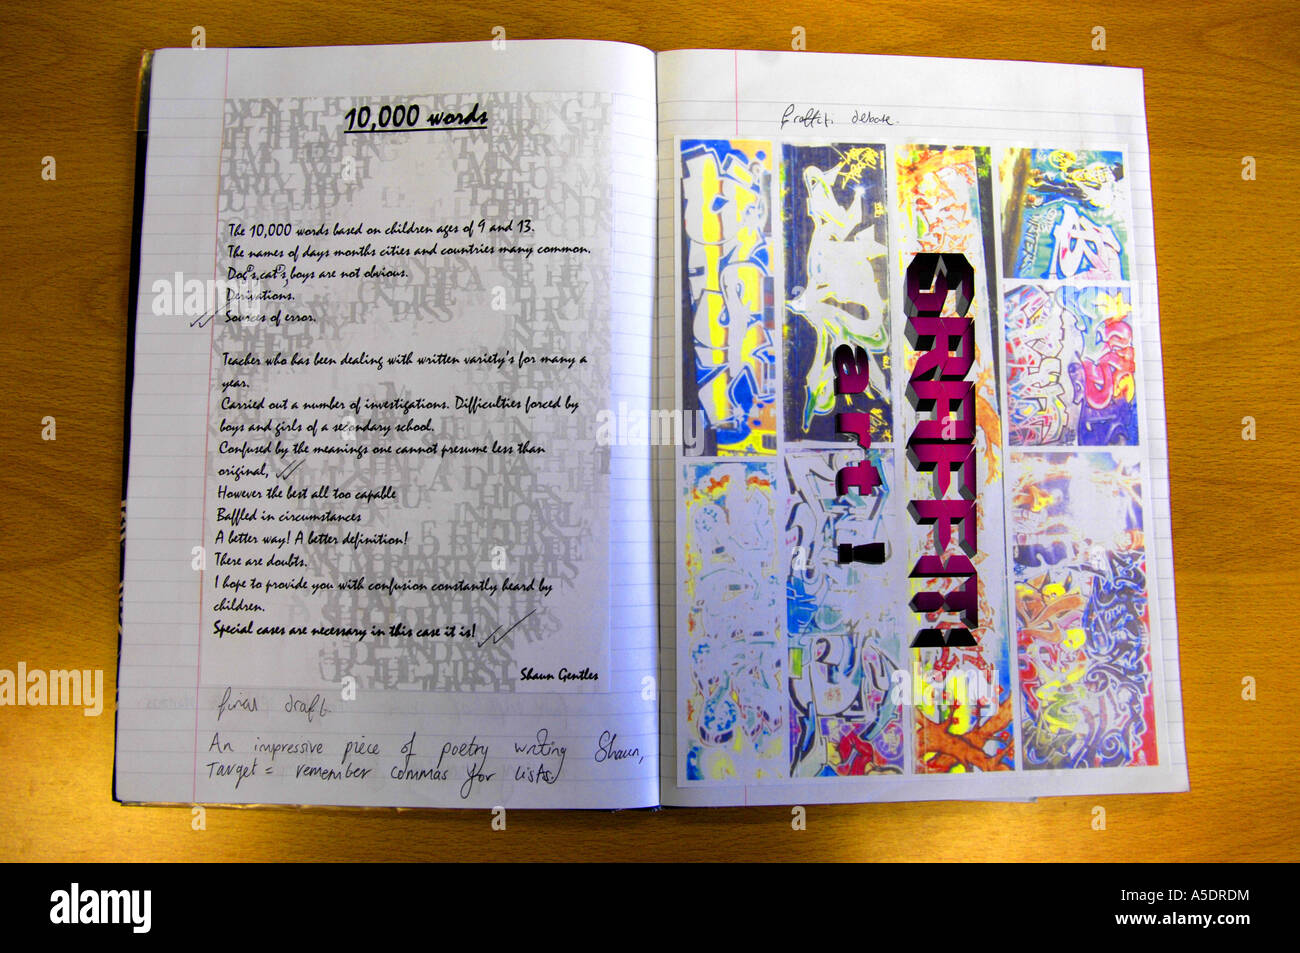 10,000 words
The 10,000 words based on children ages of 9 and 13.
The names of days months cities and countries many common.
Dog's,cat's, boys are not obvious.
Derivations.
Sources of error.
Teacher who has been dealing with written variety's for many a
year.
Carried out a number of investigations. Difficulties forced by
boys and girls of a secondary school.
Confused by the meanings one cannot presume less than
original,
However the best all too capable
Baffled in circumstances
A better way! A better definition!
There are doubts.
I hope to provide you with confusion constantly heard by
children.
Special cases are necessary in this case it is!
Shaun Gentles
final draft.
An impressive piece of poetry writing Shaun,
Target = remember commas for lists.
Graffiti debate.
GRAFFITI
art!
alamy
a
alamy
Image ID: A5DRDM
www.alamy.com